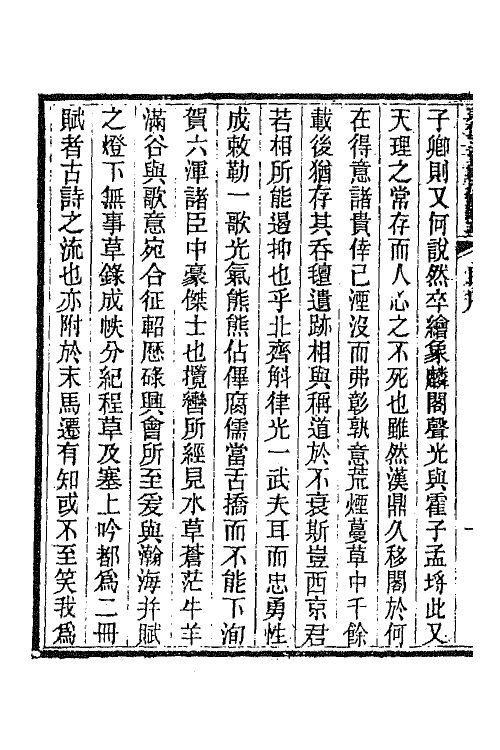 子卿則又何說然卒繪象麟閣聲光與霍子孟埒此又
天理之常存而人心之不死也雖然漢鼎久移閣於何
在得意諸貴倖已湮沒而弗彰孰意荒煙蔓草中千餘
載後猶存其吞氊遺跡相與稱道於不衰斯豈西京君
若相所能遏抑也乎北齊斛律光一武夫耳而忠勇性
成敕勒一歌光氣熊熊佔俾腐儒當舌撟而不能下洵
賀六渾諸臣中豪傑士也攬轡所經見水草蒼茫牛羊
滿谷與歌意宛合征軺歴碌興會所至爰與瀚海幷賦
之燈下無事草錄成帙分紀程草及塞上吟都為二冊
賦者古詩之流也亦附於末馬遷有知或不至笑我為